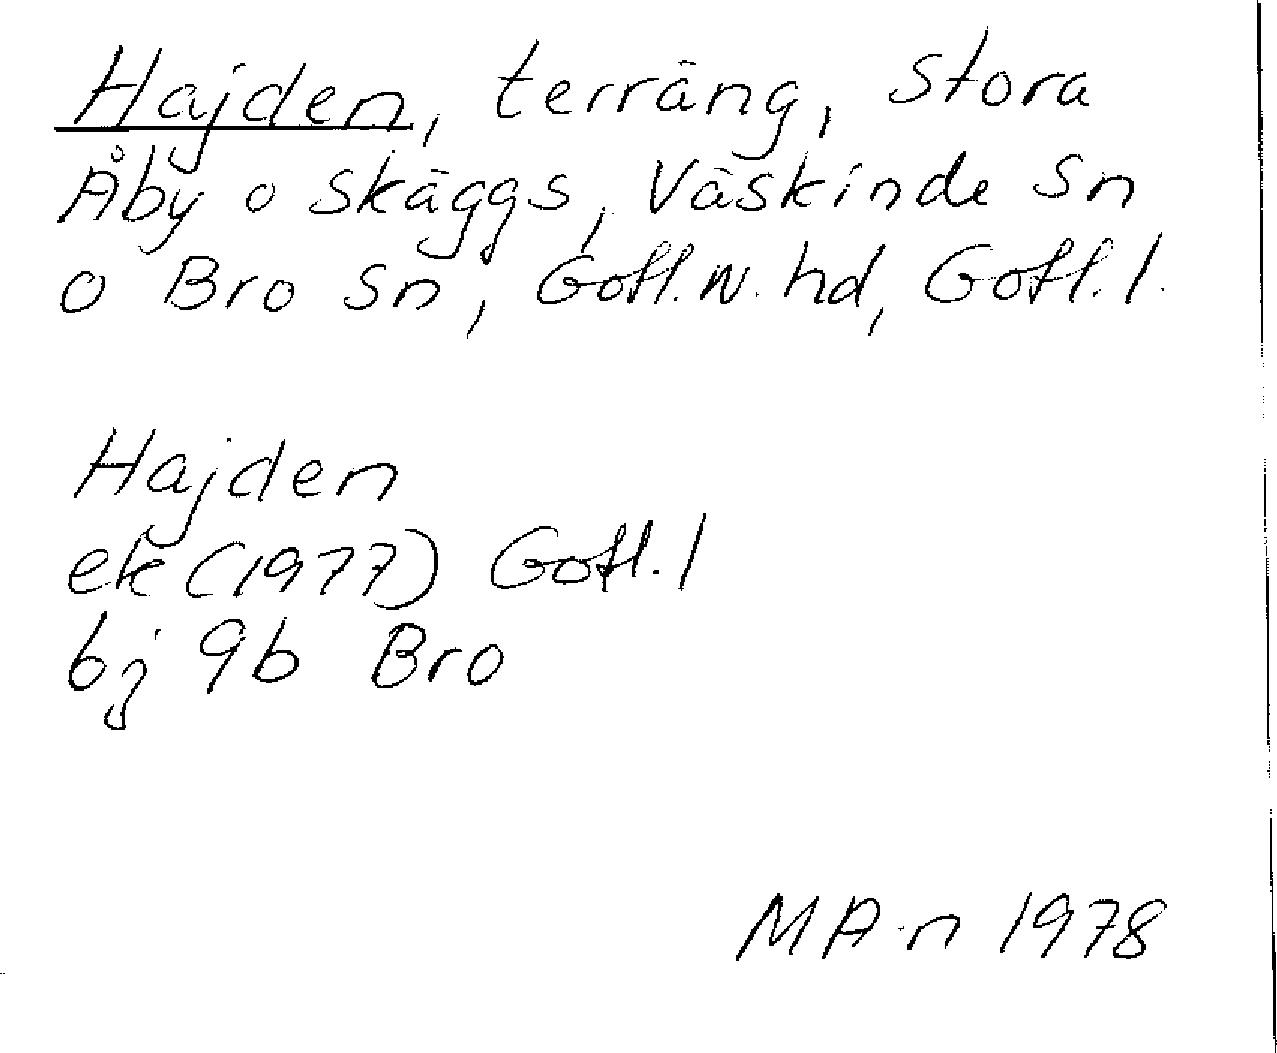 Hajden, terräng, Stora
Åby o Skäggs, Väskinde Sn
o Bro Sn, Gotl. N. hd, Gotl. l.
Hajden
ek (1977) Gotl. l
bj 9b Bro
MA-n 1978